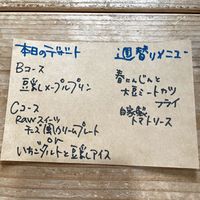 本日のデザート
Bコース
豆乳メープルプリン
Cコース
Rawスイーツ
チーズ風クリームプレート
or
いちごタルトと豆乳アイス
週替りメニュー
春にんじんと
大豆ミートカツ
フライ
自家製
トマトソース